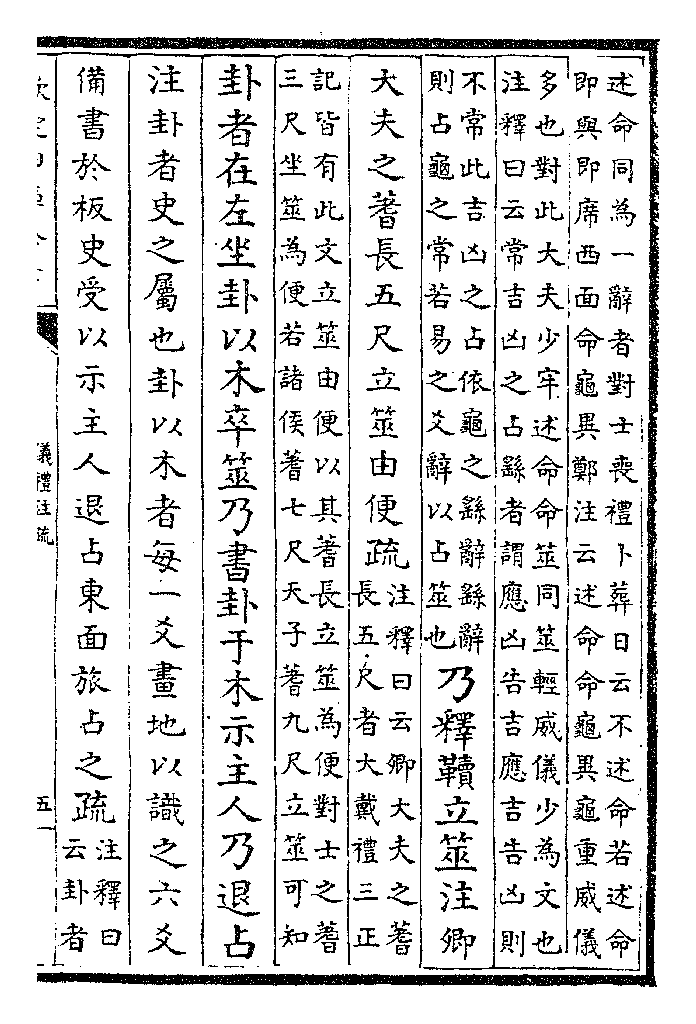 述命同為一辭者對士喪禮卜葬日云不述命若述命
即與即席西面命龜異鄭注云述命命龜異龜重威儀
多也對此大夫少牢述命命筮同筮輕威儀少為文也
注釋曰云常吉凶之占繇者謂應凶告吉應吉告凶則
不常此吉凶之占依龜之繇辭繇辭
則占龜之常若易之爻辭以占筮也
乃釋韇立筮注卿
大夫之蓍長五尺立筮由便疏
注釋曰云卿大夫之蓍
長五尺者大戴禮三正
記皆有此文立筮由便以其蓍長立筮為便對士之蓍
三尺坐筮為便若諸侯蓍七尺天子蓍九尺立筮可知
卦者在左坐卦以木卒筮乃書卦于木示主人乃退占
注卦者史之屬也卦以木者每一爻畫地以識之六爻
備書於板史受以示主人退占東面旅占之疏
注釋曰
云卦者
儀禮注疏
五